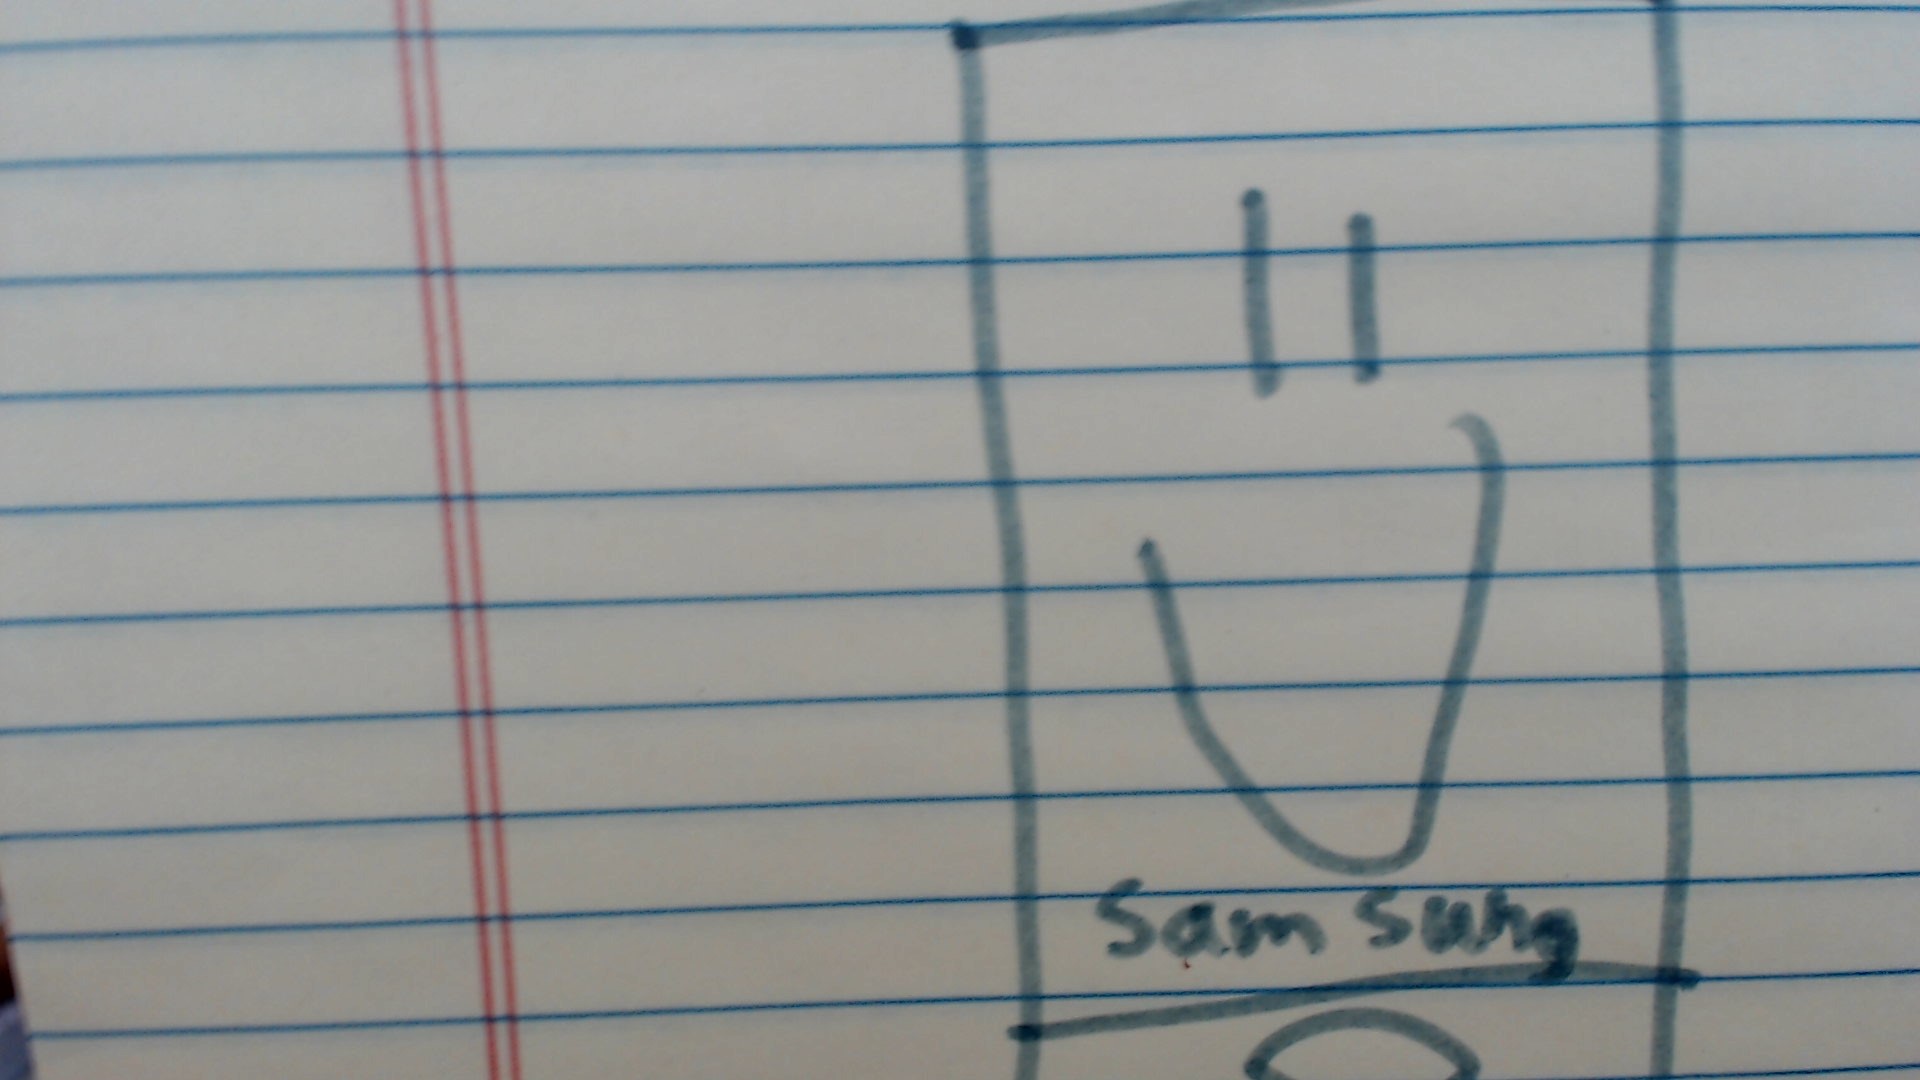 Sam Sung